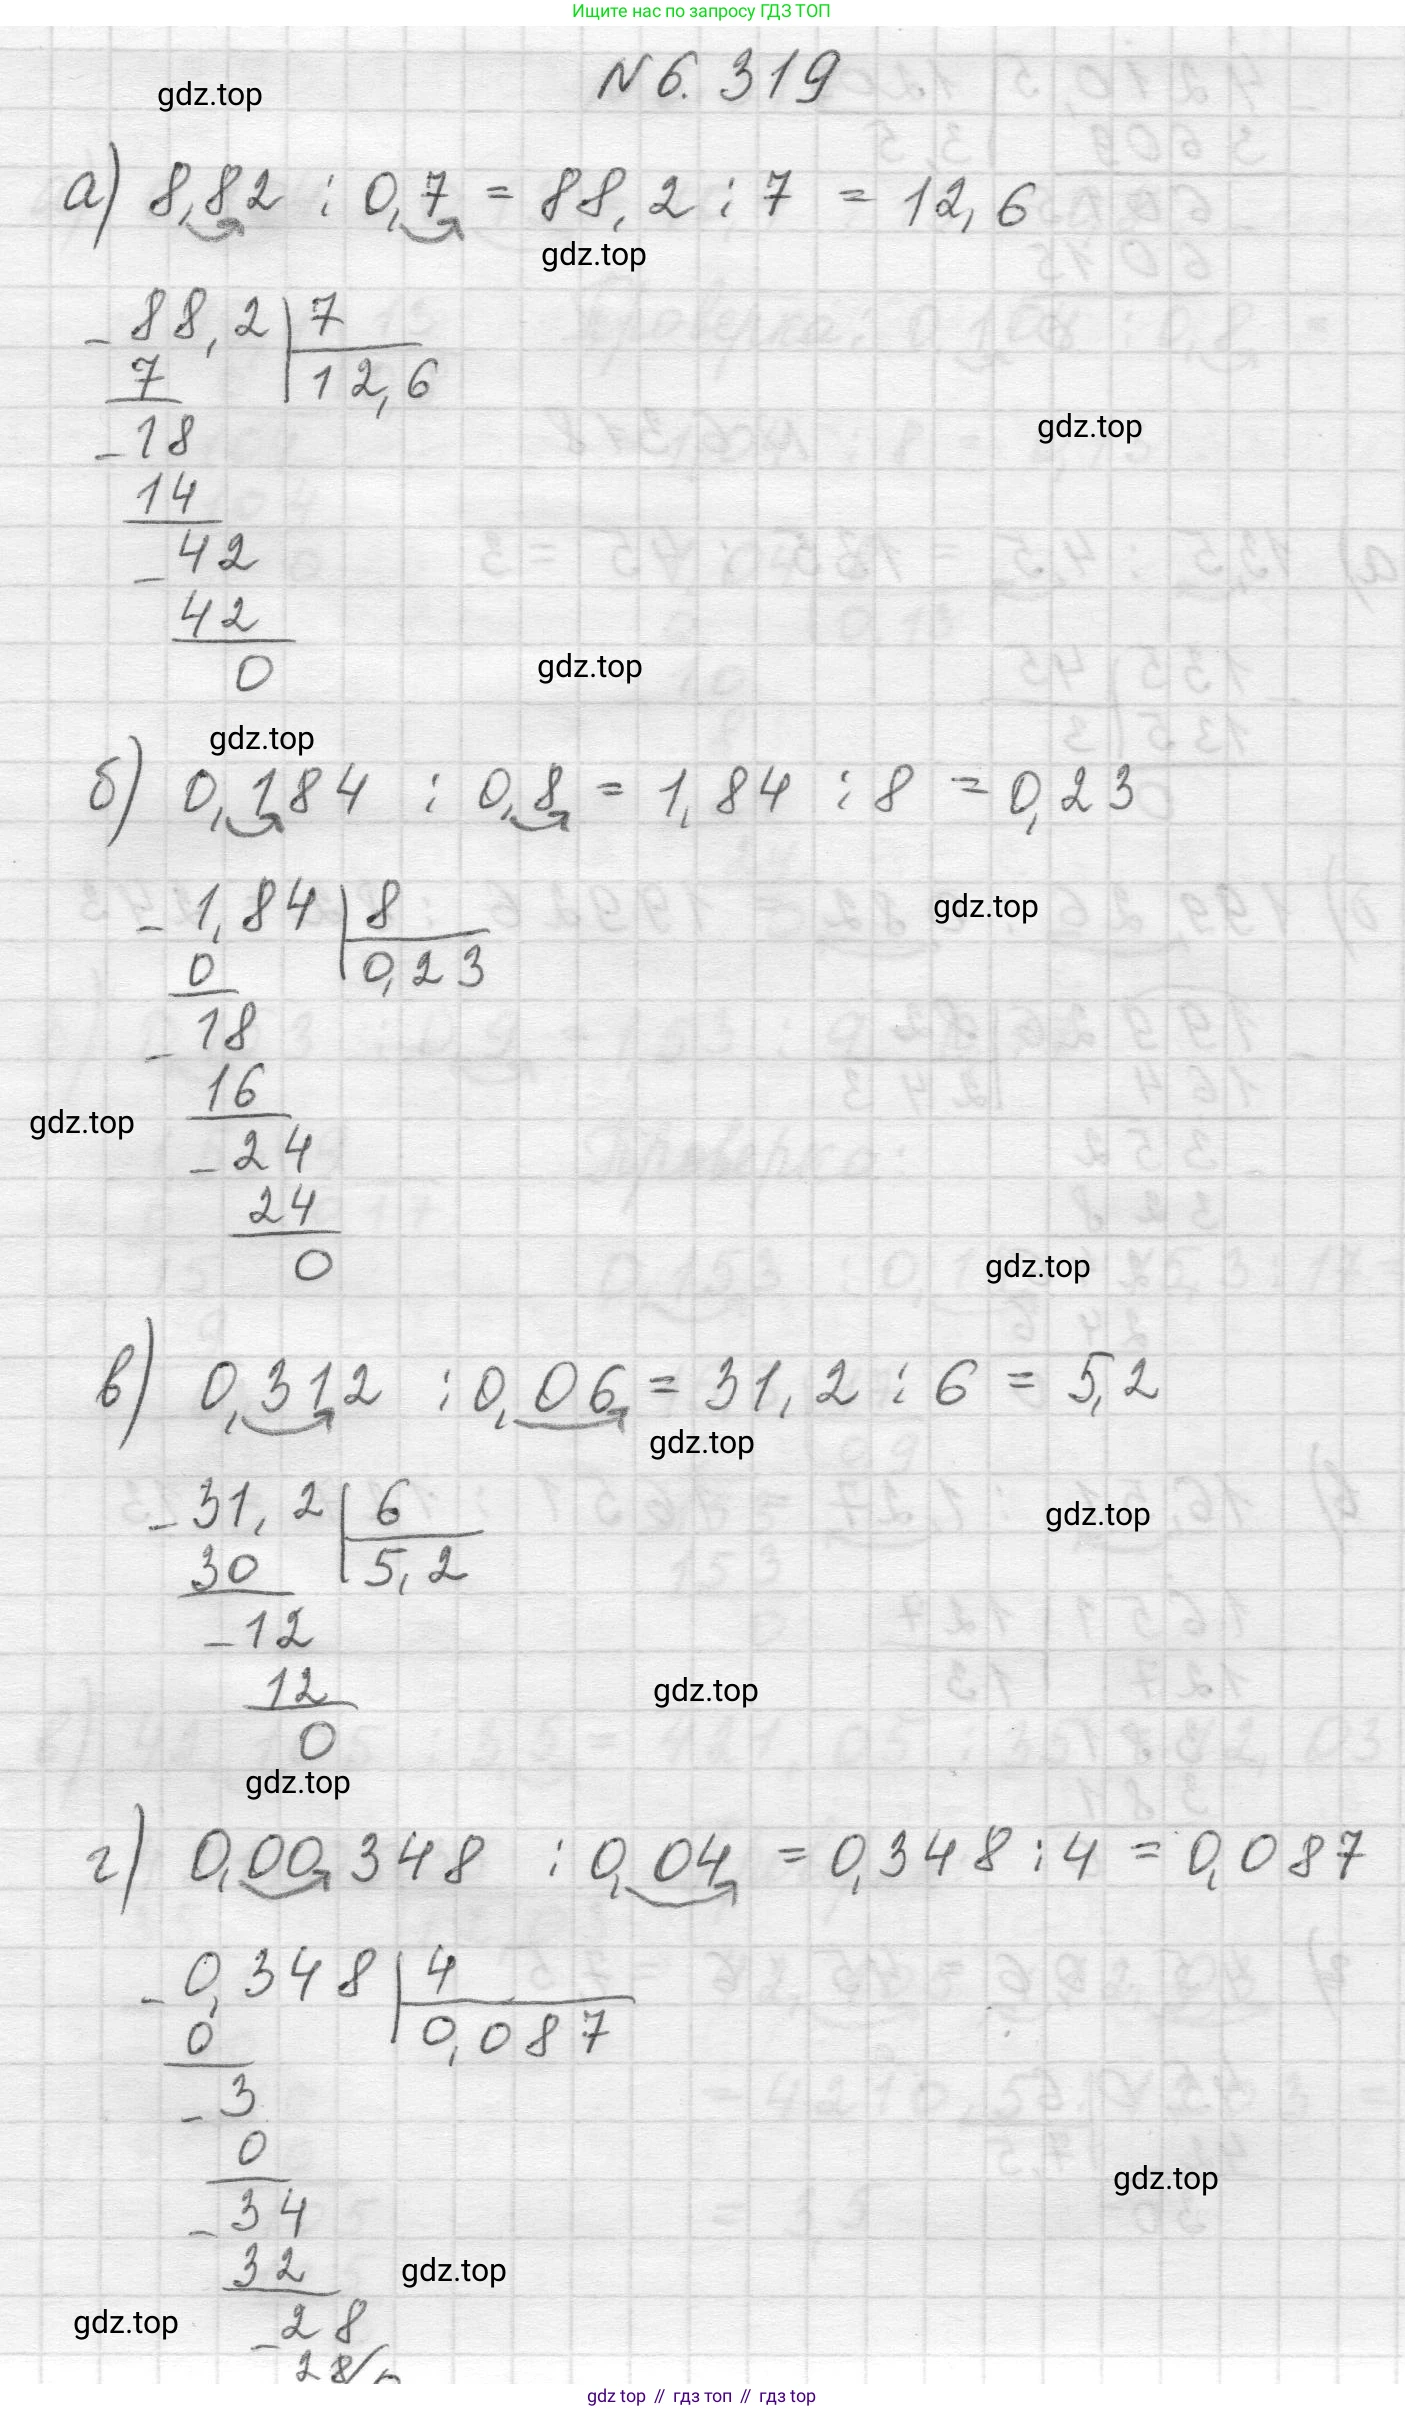 Ищите нас по запросу ГДЗ ТОП
N 6. 319
gdz.top
а) 8,82 : 0,7 = 88,2 : 7 = 12,6
gdz.top
- 88,2 | 7
7 | 12,6
gdz.top
- 18
14
- 42
42
0
gdz.top
gdz.top
б) 0,184 : 0,8 = 1,84 : 8 = 0,23
- 1,84 | 8
gdz.top
0 | 0,23
- 18
16
gdz.top
- 24
24
0
gdz.top
в) 0,312 : 0,06 = 31,2 : 6 = 5,2
gdz.top
- 31,2 | 6
gdz.top
30 | 5,2
- 12
12
gdz.top
0
gdz.top
г) 0,00348 : 0,04 = 0,348 : 4 = 0,087
- 0,348 | 4
0 | 0,087
- 3
0
gdz.top
- 34
32
gdz.top
gdz.top
- 28
28
gdz top // гдз топ // гдз top